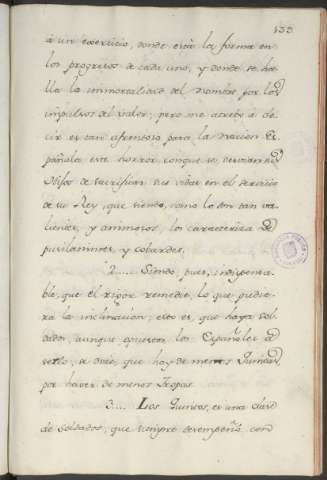 133
á un exercicio, donde está la forma en
los progresos de cada uno, y donde se ha-
lla la inmortalidad del Nombre por los
impulsos del valor; pero me atrebo á de-
cir es tan afrentoso para la Nacion Es-
pañola este horror, conque se
Hijos de sacrifican sus vidas en el servicio
de su Rey, que siendo, como lo son tan va-
lientes, y animosos, los caracteriza de
pusilanimes, y cobardes.
2.... Siendo, pues, indispensa-
ble, que el rigor remedie, lo que pudie-
ra la inclinacion; esto es, que haya Sol-
dados, aunque los Españoles á
serlo, ó que hay de menos Quintas
por haver de menos Tropas.
3.... Los Quintos, es una clase
de Soldados, que siempre desempeñó con